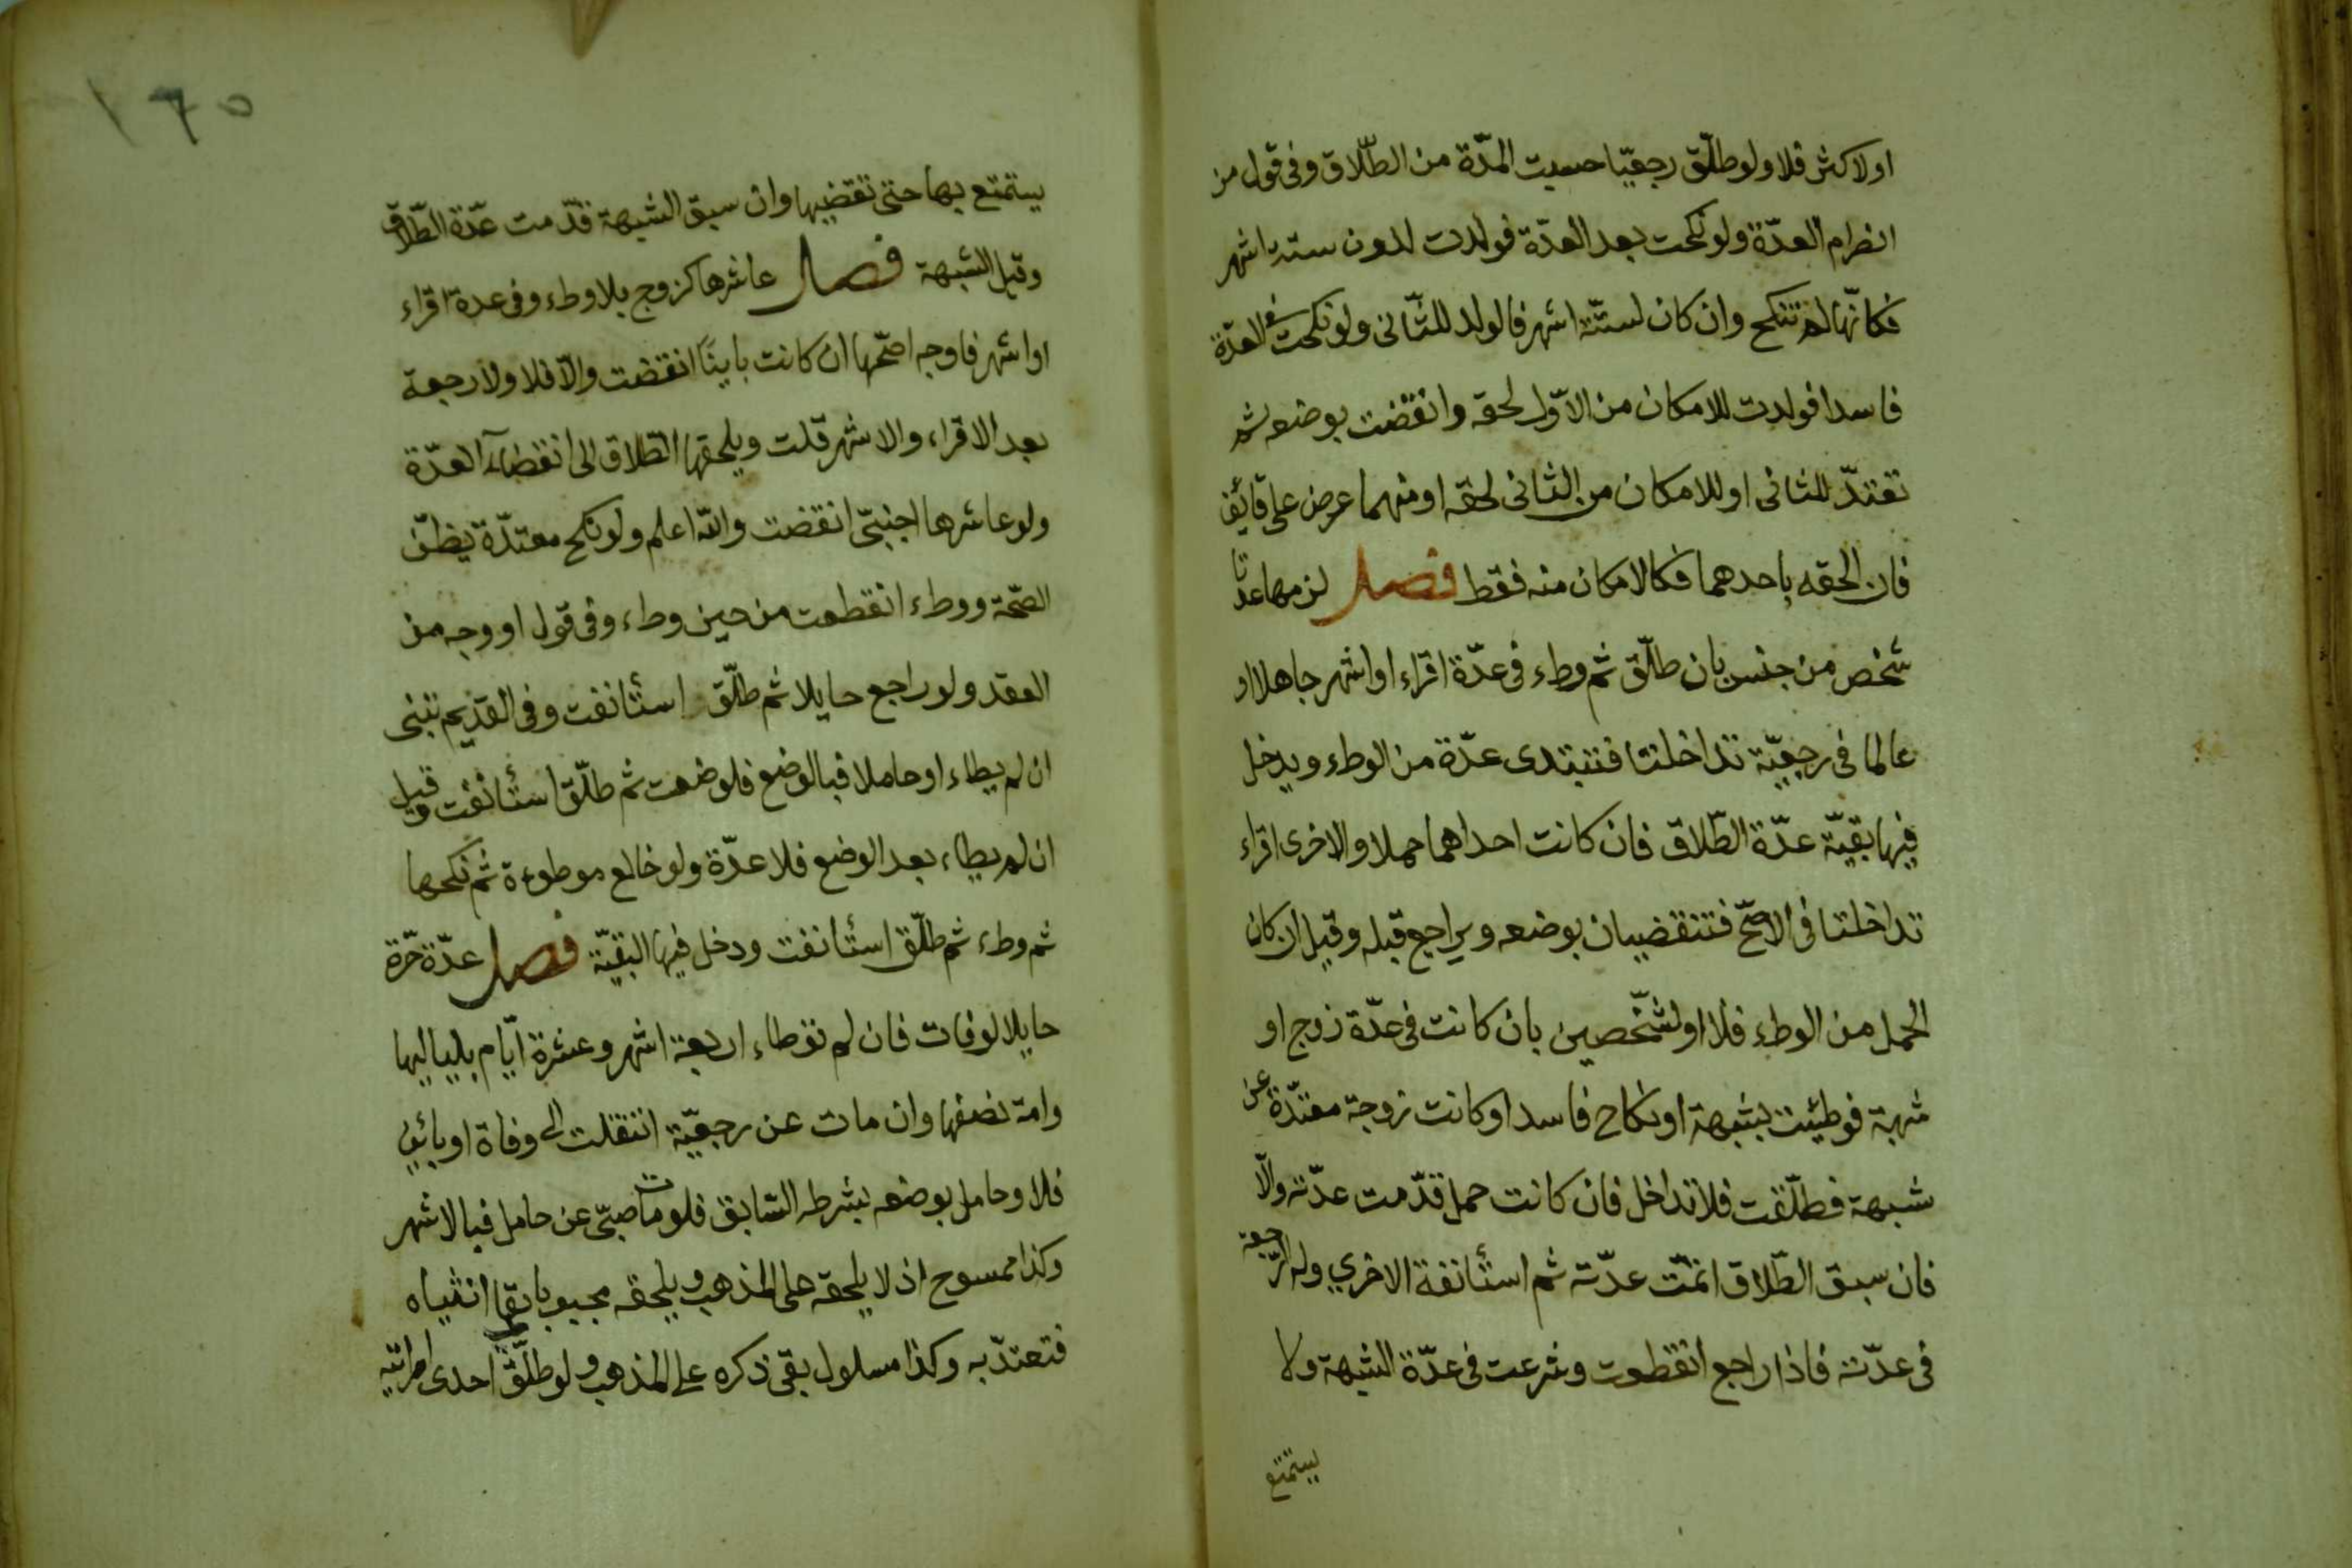 اولاكثر فلا ولو طلّق رجعيّا حسبت المدّة من الطّلاق وفى قول من
انصرام العدّة ولو نكحت بعد العدّة فولدت لدون ستة اشهر
فكانّها لم تنكح وان كان لستّة اشهر فالولد للثّانى ولو نكحت فى العدّة
فاسدا فولدت للامكان من الاوّل لحقه وانقضت بوضعه ثم
تعتدّ للثانى او للامكان من الثانى لحقه او منهما عرض على قايف
فان الحقه باحدهما فكالامكان منه فقط فصل لزمها عدتا
شخص من جنس بان طلّق ثم وطء فى عدّة اقراء او اشهر جاهلا او
عالما فى رجعيّة تداخلتا فتبتدى عدّة من الوطء ويدخل
فيها بقيّة عدّة الطّلاق فان كانت احداهما حملا والاخرى اقراء
تداخلتا فى الاصحّ فتنقضيان بوضعه ويراجع قبله وقيل ان كان
الحمل من الوطء فلا او لشخصين بان كانت فى عدّة زوج او
شبهة فوطئت بشبهة او نكاح فاسد او كانت زوجة معتدّة عن
شبهة فطلّقت فلا تداخل فان كانت حمل قدّمت عدّته والّا
فان سبق الطّلاق اتمّت عدّته ثم استأنفة الاخري وله الرّجعة
فى عدّته فاذا راجع انقطعت وشرعت فى عدّة الشبهة ولا
يستمتع
١٦٥
يستمتع بها حتى تقضيها وان سبق الشبهة قدّمت عدّة الطّلاق
وقيل الشبهة فصل عاشرها كزوج بلا وطء وفى عدة اقراء
او اشهر فاوجه اصحّها ان كانت باينًا انقضت والّا فلا ولا رجعة
بعد الاقراء والاشهر قلت ويلحقها الطّلاق الى انقضآء العدّة
ولو عاشرها اجنبىّ انقضت والله اعلم ولو نكح معتدّة بظنّ
الصّحّة ووطء انقطعت من حين وطء وفى قول او وجه من
العقد ولو راجع حايلا ثم طلّق استأنفت وفى القديم تبنى
ان لم يطاء او حاملا فبالوضع فلو وضعت ثم طلّق استأنفت وقيل
ان لم يطاء بعد الوضع فلا عدّة ولو خالع موطوءة ثم نكحها
ثم وطء ثم طلّق استأنفت ودخل فيها البقيّة فصل عدّة حرّة
حايلا لوفات فان لم توطاء اربعة اشهر وعشرة ايّام بلياليها
وامة نصفها وان مات عن رجعيّة انتقلت الى وفاة او بائن
فلا وحامل بوضعه بشرطه السّابق فلو مات صبىّ عن حامل فبالاشهر
وكذا ممسوح اذ لا يلحقه على المذهب ويلحقه مجبوب بقى انثياه
فتعتدّ به وكذا مسلول بقى ذكره على المذهب ولو طلّق احدى امراتيه